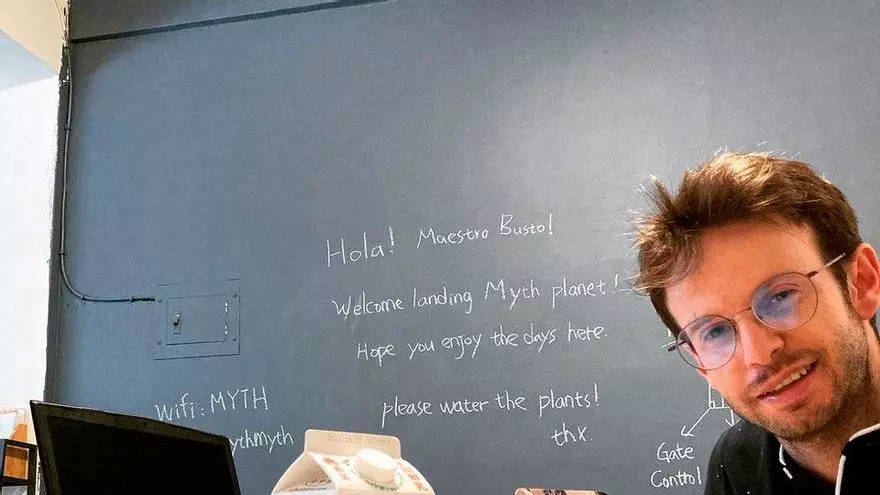 Hola! Maestro Busto!
Welcome landing Myth planet!
Hope you enjoy the days here.
please water the plants!
thx.
Wifi: MYTH
Gate
Control